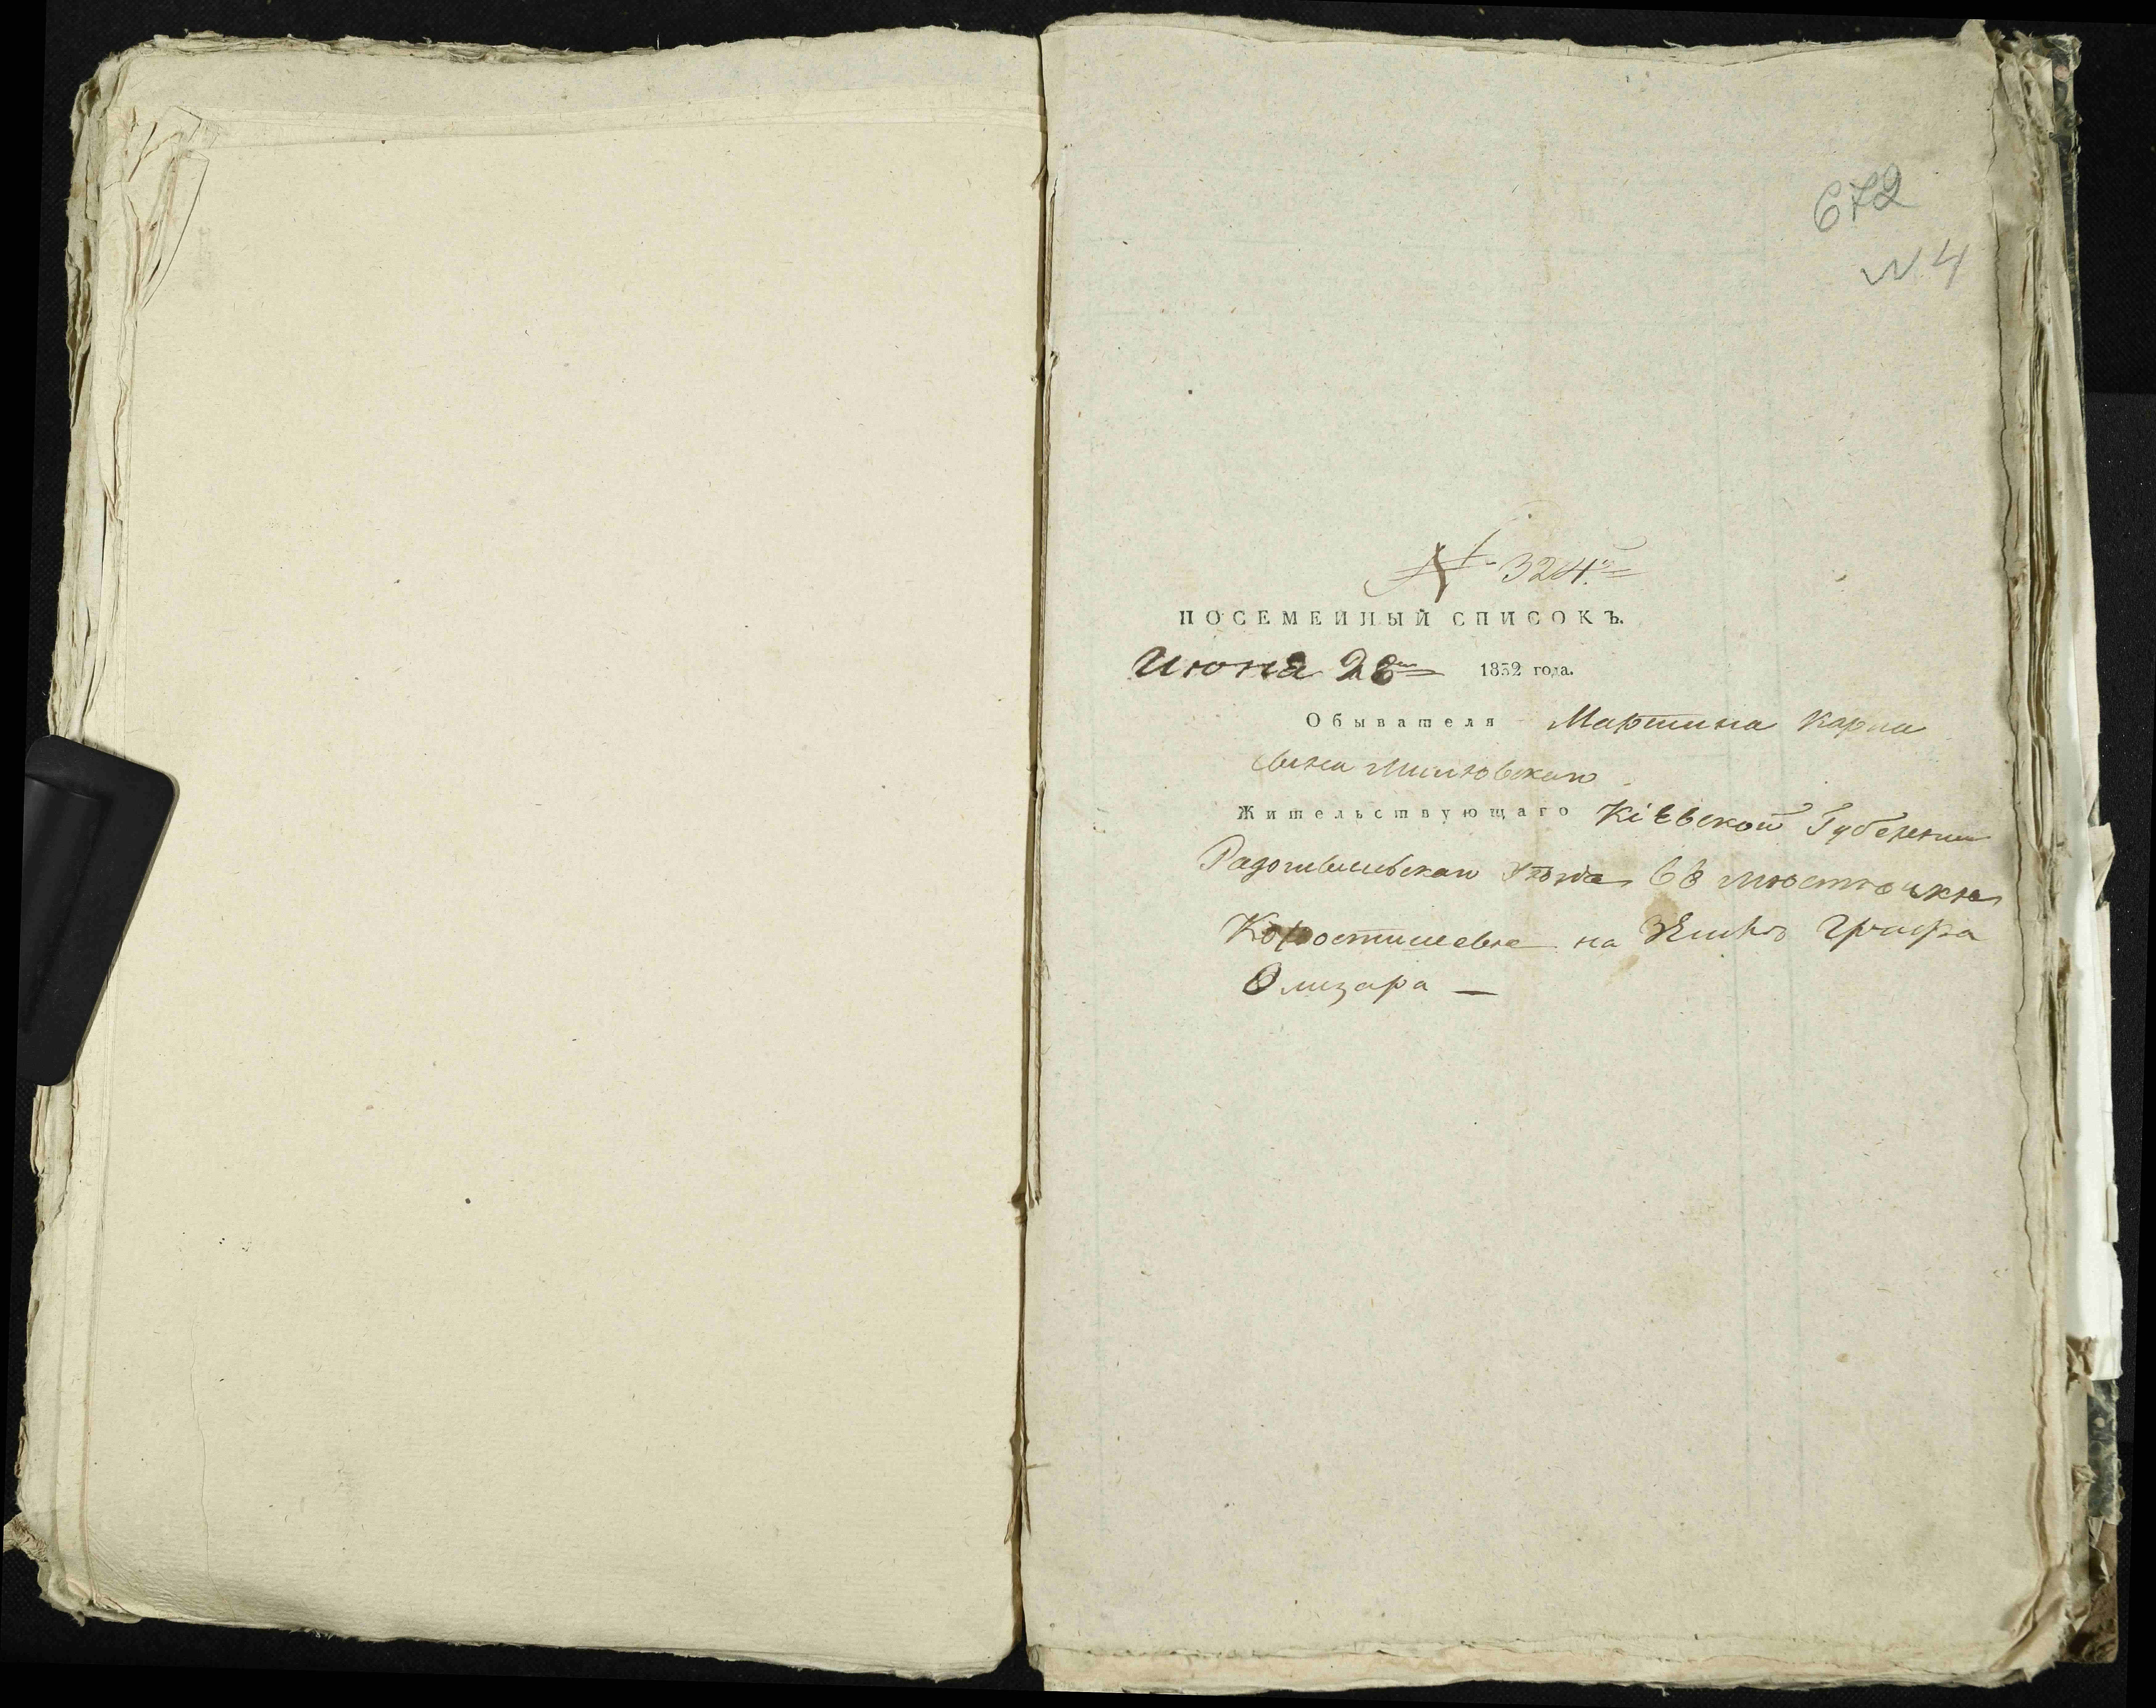 672
N 4
№ 324.
ПОСЕМЕЙНЫЙ СПИСОКЪ.
Июня 28 1832 года.
Обывателя Мартина Карпа
Жительствующаго Кіевской Губерніи
Радомысльскаго уѣзда въ мѣстѣчкѣ
Коростишевѣ на Землѣ Графа
Олизара —